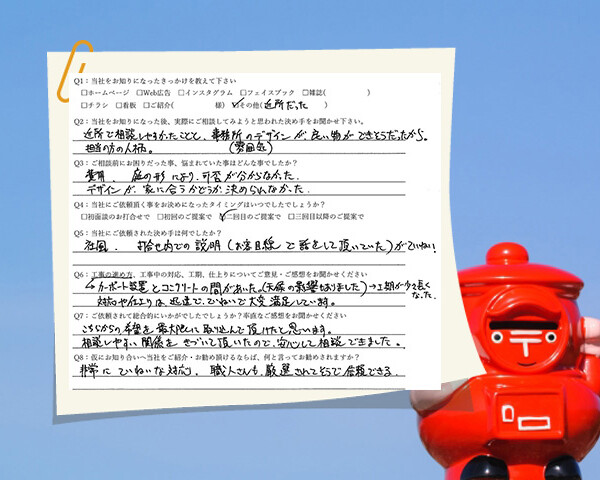 Q1：当社をお知りになったきっかけを教えて下さい
□ホームページ □Web広告 □インスタグラム □フェイスブック □雑誌( )
□チラシ □看板 □ご紹介( 様) ☑その他(近所だった )
Q2：当社をお知りになった後、実際にご相談してみようと思われた決め手をお聞かせ下さい。
近所で相談しやすかったことと、事務所のデザインが、良い物ができそうだったから。
担当の方の人柄。 (雰囲気)
Q3：ご相談前にお困りだった事、悩まれていた事はどんな事でしたか？
費用、庭の形により、可否が分からなかった。
デザインが、家に合うかどうか決められなかった。
Q4：当社にご依頼頂く事をお決めになったタイミングはいつでしたでしょうか？
□初面談のお打合せで □初回のご提案で ☑二回目のご提案で □三回目以降のご提案で
Q5：当社にご依頼された決め手は何でしたか？
社風、打合せ内での説明(お客目線で話をして頂いていた)がていねい!
Q6：工事の進め方、工事中の対応、工期、仕上りについてご意見・ご感想をお聞かせください
カーポート設置とコンクリートの間があいた。(天候の影響もありました)→工期が少々長くなった。
対応や仕上りは、迅速で、ていねいで大変満足しています。
Q7：ご依頼されて総合的にいかがでしたでしょうか？率直なご感想をお聞かせください
こちらからの希望を最大限に取り込んで頂けたと思います。
相談しやすい関係をきづいて頂いたので、安心して相談できました。
Q8：仮にお知り合いへ当社をご紹介・お勧め頂けるならば、何と言ってお勧めされますか？
非常にていねいな対応、職人さんも厳選されてそうで信頼できる。
〒